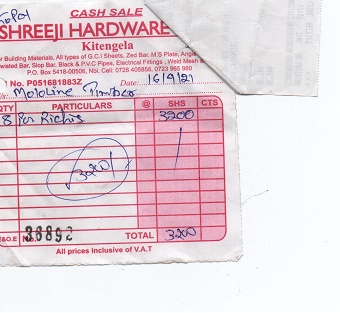 CASH SALE
SHREEJI HARDWARE
Kitengela
or Building Materials, All types of G.C.I Sheets, Zed Bar, M.S Plate, Angle
Twisted Bar, Slop Bar, Black & P.V.C Pipes, Electrical Fittings, Weld Mesh &
P.O. Box 5418-00506, Nbi. Cell: 0728 408858, 0723 965 980
No. P051681883Z Date: 16/9/21
QTY PARTICULARS @ SHS CTS
8 3200
3200/
E&O.E No. 36892 TOTAL 3200
All prices inclusive of V.A.T